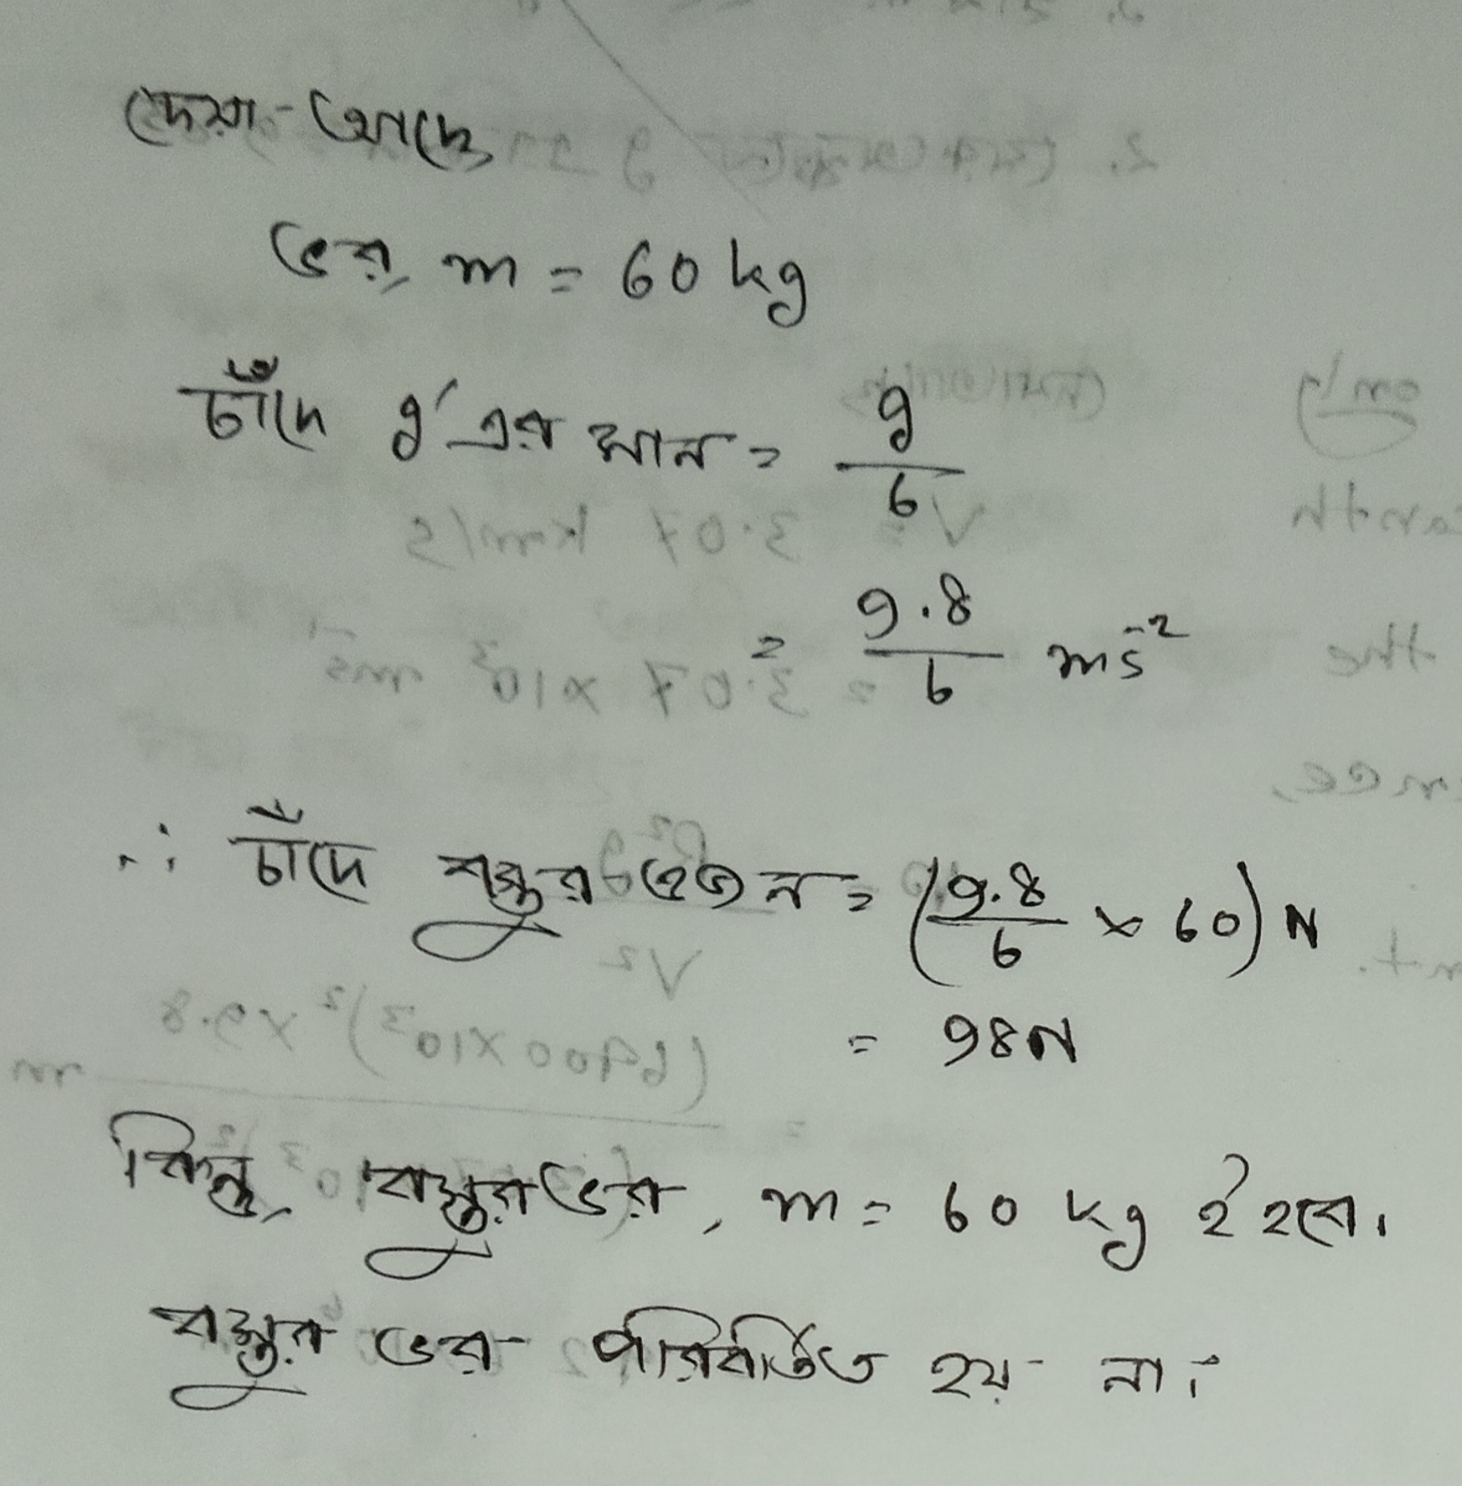 দেয়া আছে,
ভর, m = 60 kg
চাঁদে g' এর মান = g/6
= 9.8/6 ms⁻²
∴ চাঁদে বস্তুর ওজন = (9.8/6 × 60) N
= 98N
কিন্তু, বস্তুর ভর, m = 60 kg ই হবে।
বস্তুর ভর পরিবর্তিত হয় না।